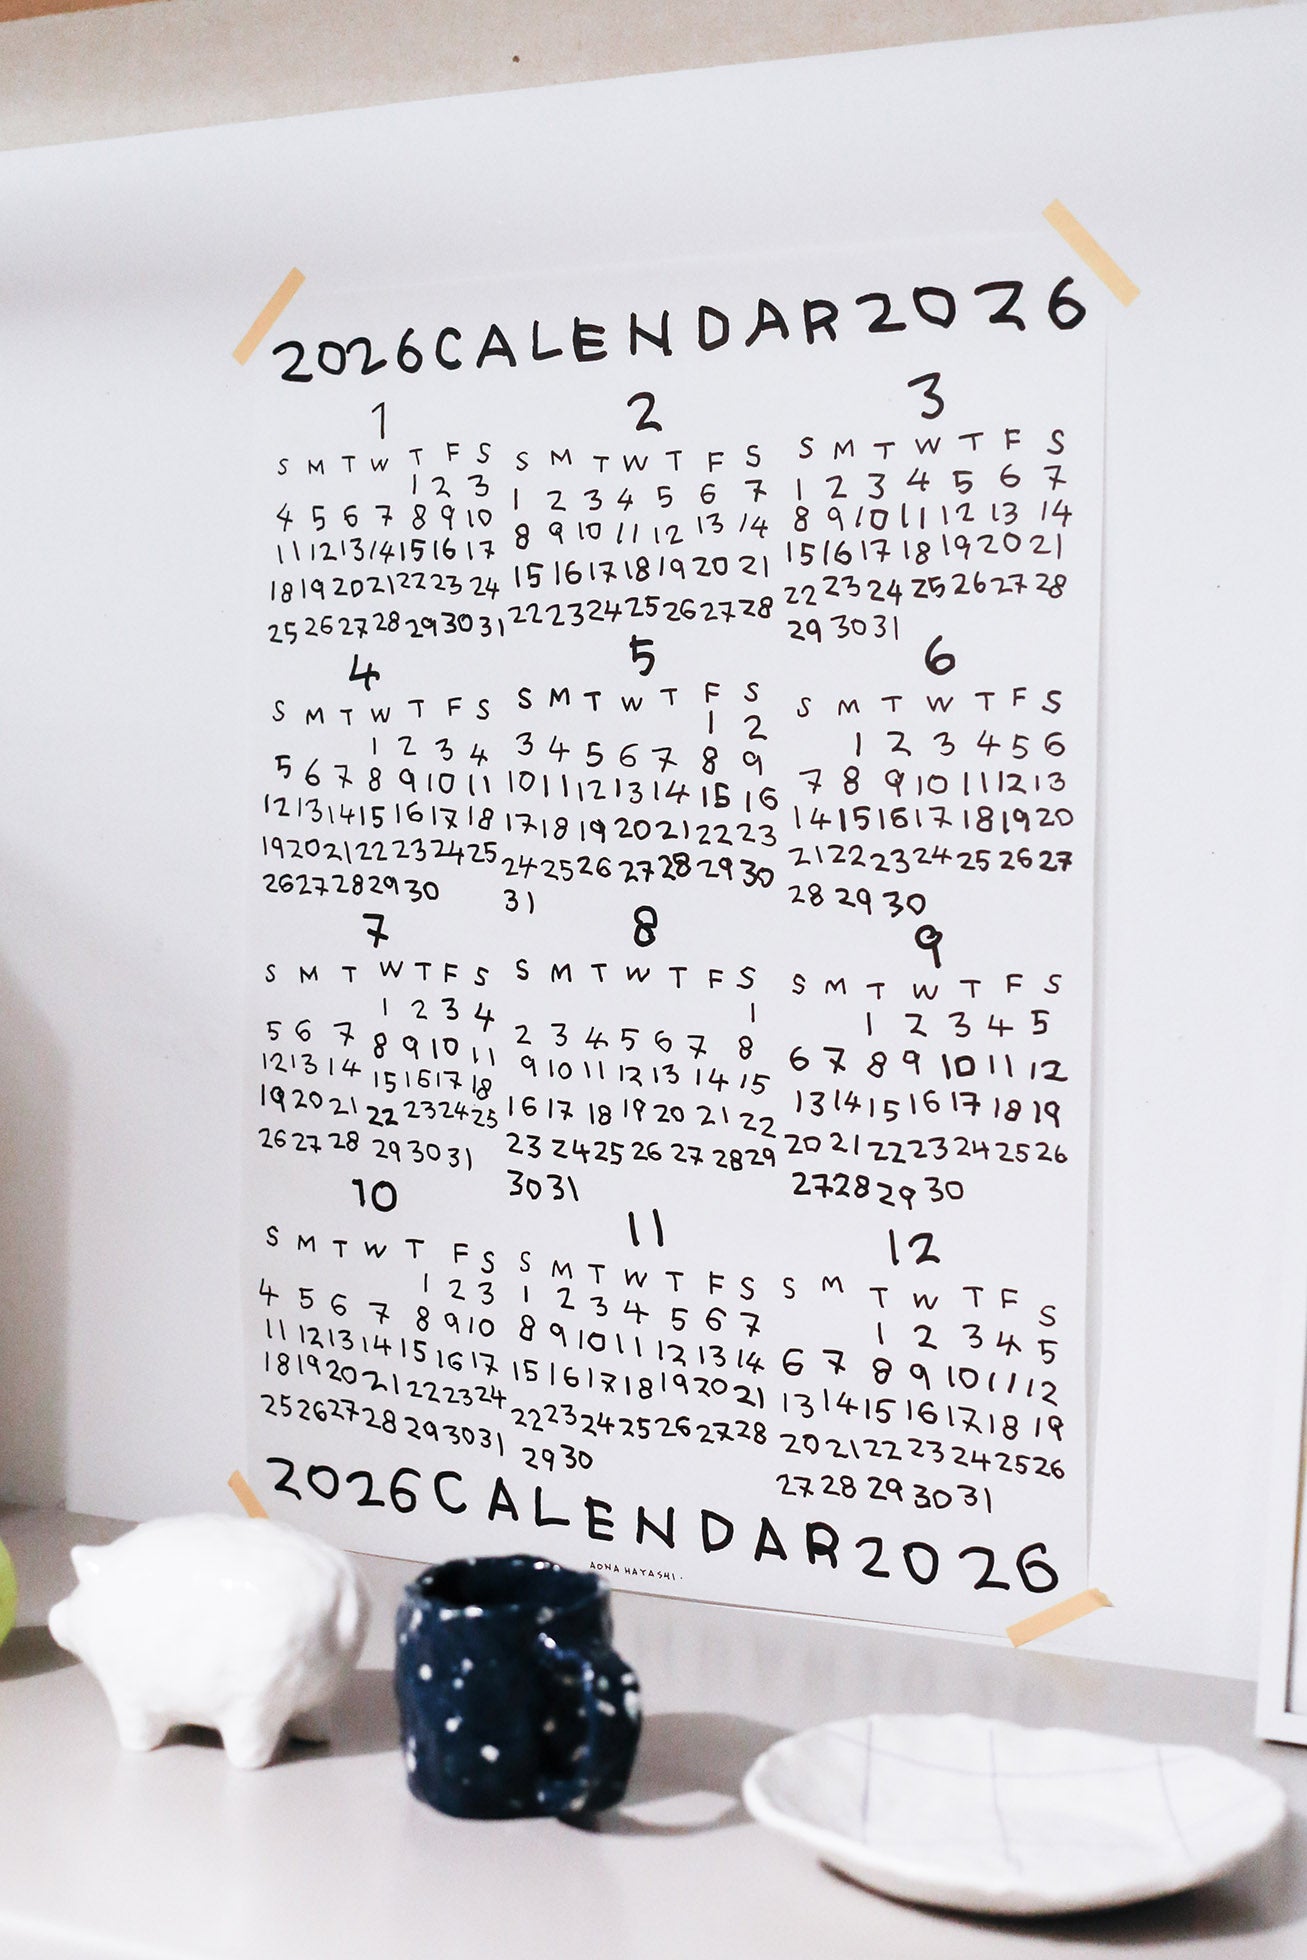 2026CALENDAR2026
1
S M T W T F S
1 2 3
4 5 6 7 8 9 10
11 12 13 14 15 16 17
18 19 20 21 22 23 24
25 26 27 28 29 30 31
2
S M T W T F S
1 2 3 4 5 6 7
8 9 10 11 12 13 14
15 16 17 18 19 20 21
22 23 24 25 26 27 28
3
S M T W T F S
1 2 3 4 5 6 7
8 9 10 11 12 13 14
15 16 17 18 19 20 21
22 23 24 25 26 27 28
29 30 31
4
S M T W T F S
1 2 3 4
5 6 7 8 9 10 11
12 13 14 15 16 17 18
19 20 21 22 23 24 25
26 27 28 29 30
5
S M T W T F S
1 2
3 4 5 6 7 8 9
10 11 12 13 14 15 16
17 18 19 20 21 22 23
24 25 26 27 28 29 30
31
6
S M T W T F S
1 2 3 4 5 6
7 8 9 10 11 12 13
14 15 16 17 18 19 20
21 22 23 24 25 26 27
28 29 30
7
S M T W T F S
1 2 3 4
5 6 7 8 9 10 11
12 13 14 15 16 17 18
19 20 21 22 23 24 25
26 27 28 29 30 31
8
S M T W T F S
1
2 3 4 5 6 7 8
9 10 11 12 13 14 15
16 17 18 19 20 21 22
23 24 25 26 27 28 29
30 31
9
S M T W T F S
1 2 3 4 5
6 7 8 9 10 11 12
13 14 15 16 17 18 19
20 21 22 23 24 25 26
27 28 29 30
10
S M T W T F S
1 2 3
4 5 6 7 8 9 10
11 12 13 14 15 16 17
18 19 20 21 22 23 24
25 26 27 28 29 30 31
11
S M T W T F S
1 2 3 4 5 6 7
8 9 10 11 12 13 14
15 16 17 18 19 20 21
22 23 24 25 26 27 28
29 30
12
S M T W T F S
1 2 3 4 5
6 7 8 9 10 11 12
13 14 15 16 17 18 19
20 21 22 23 24 25 26
27 28 29 30 31
2026CALENDAR2026
AONA HAYASHI.